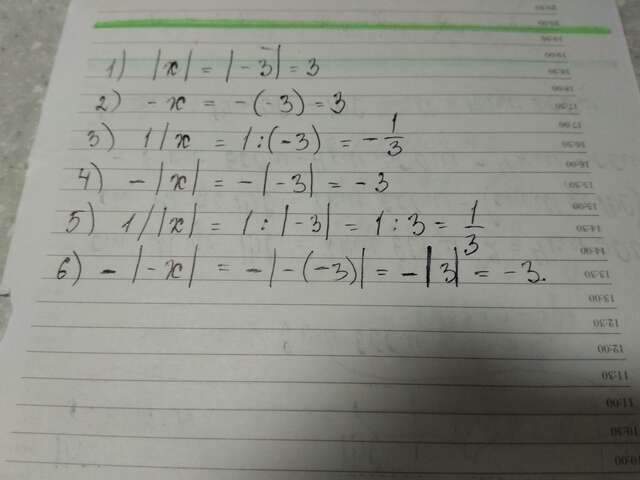 20:00
19:30
19:00
1) |x| = |-3| = 3
18:30
18:00
2) -x = -(-3) = 3
17:30
17:00
3) 1/x = 1:(-3) = -1/3
16:30
16:00
4) -|x| = -|-3| = -3
15:30
15:00
5) 1/|x| = 1:|-3| = 1:3 = 1/3
14:30
14:00
6) -|-x| = -|-(-3)| = -|3| = -3.
13:30
13:00
12:30
12:00
11:30
11:00
10:30
10:00